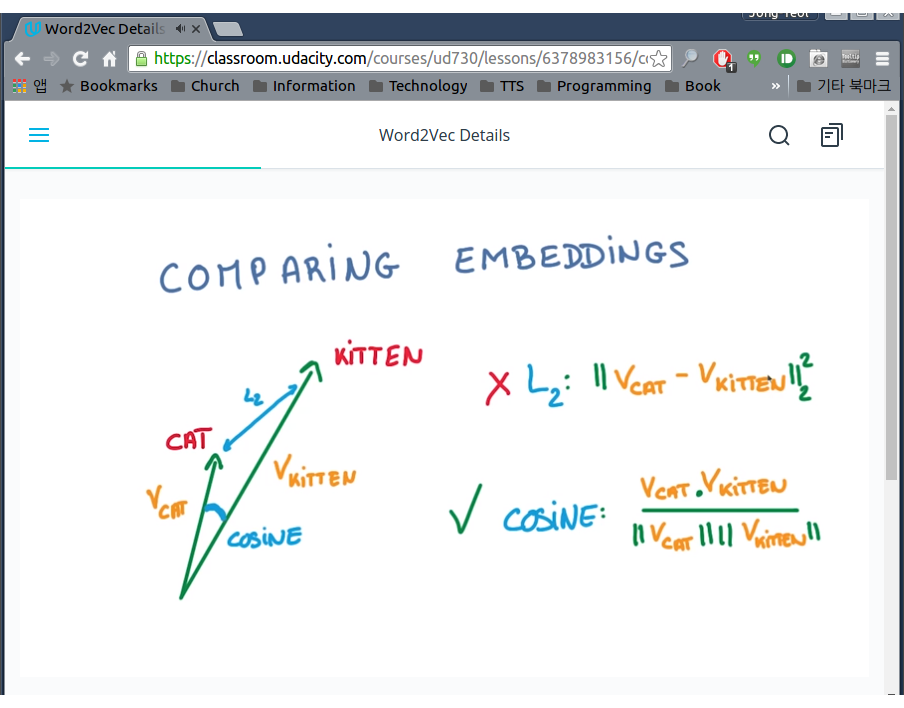 Jong Yeol
Word2Vec Details
https://classroom.udacity.com/courses/ud730/lessons/6378983156/c
1
앱 Bookmarks Church Information Technology TTS Programming Book » 기타 북마크
Word2Vec Details
COMPARING EMBEDDINGS
KITTEN
L2
CAT
VCAT
VKITTEN
COSINE
X L2: ||VCAT - VKITTEN||²₂
✓ COSINE: VCAT . VKITTEN
||VCAT|| ||VKITTEN||